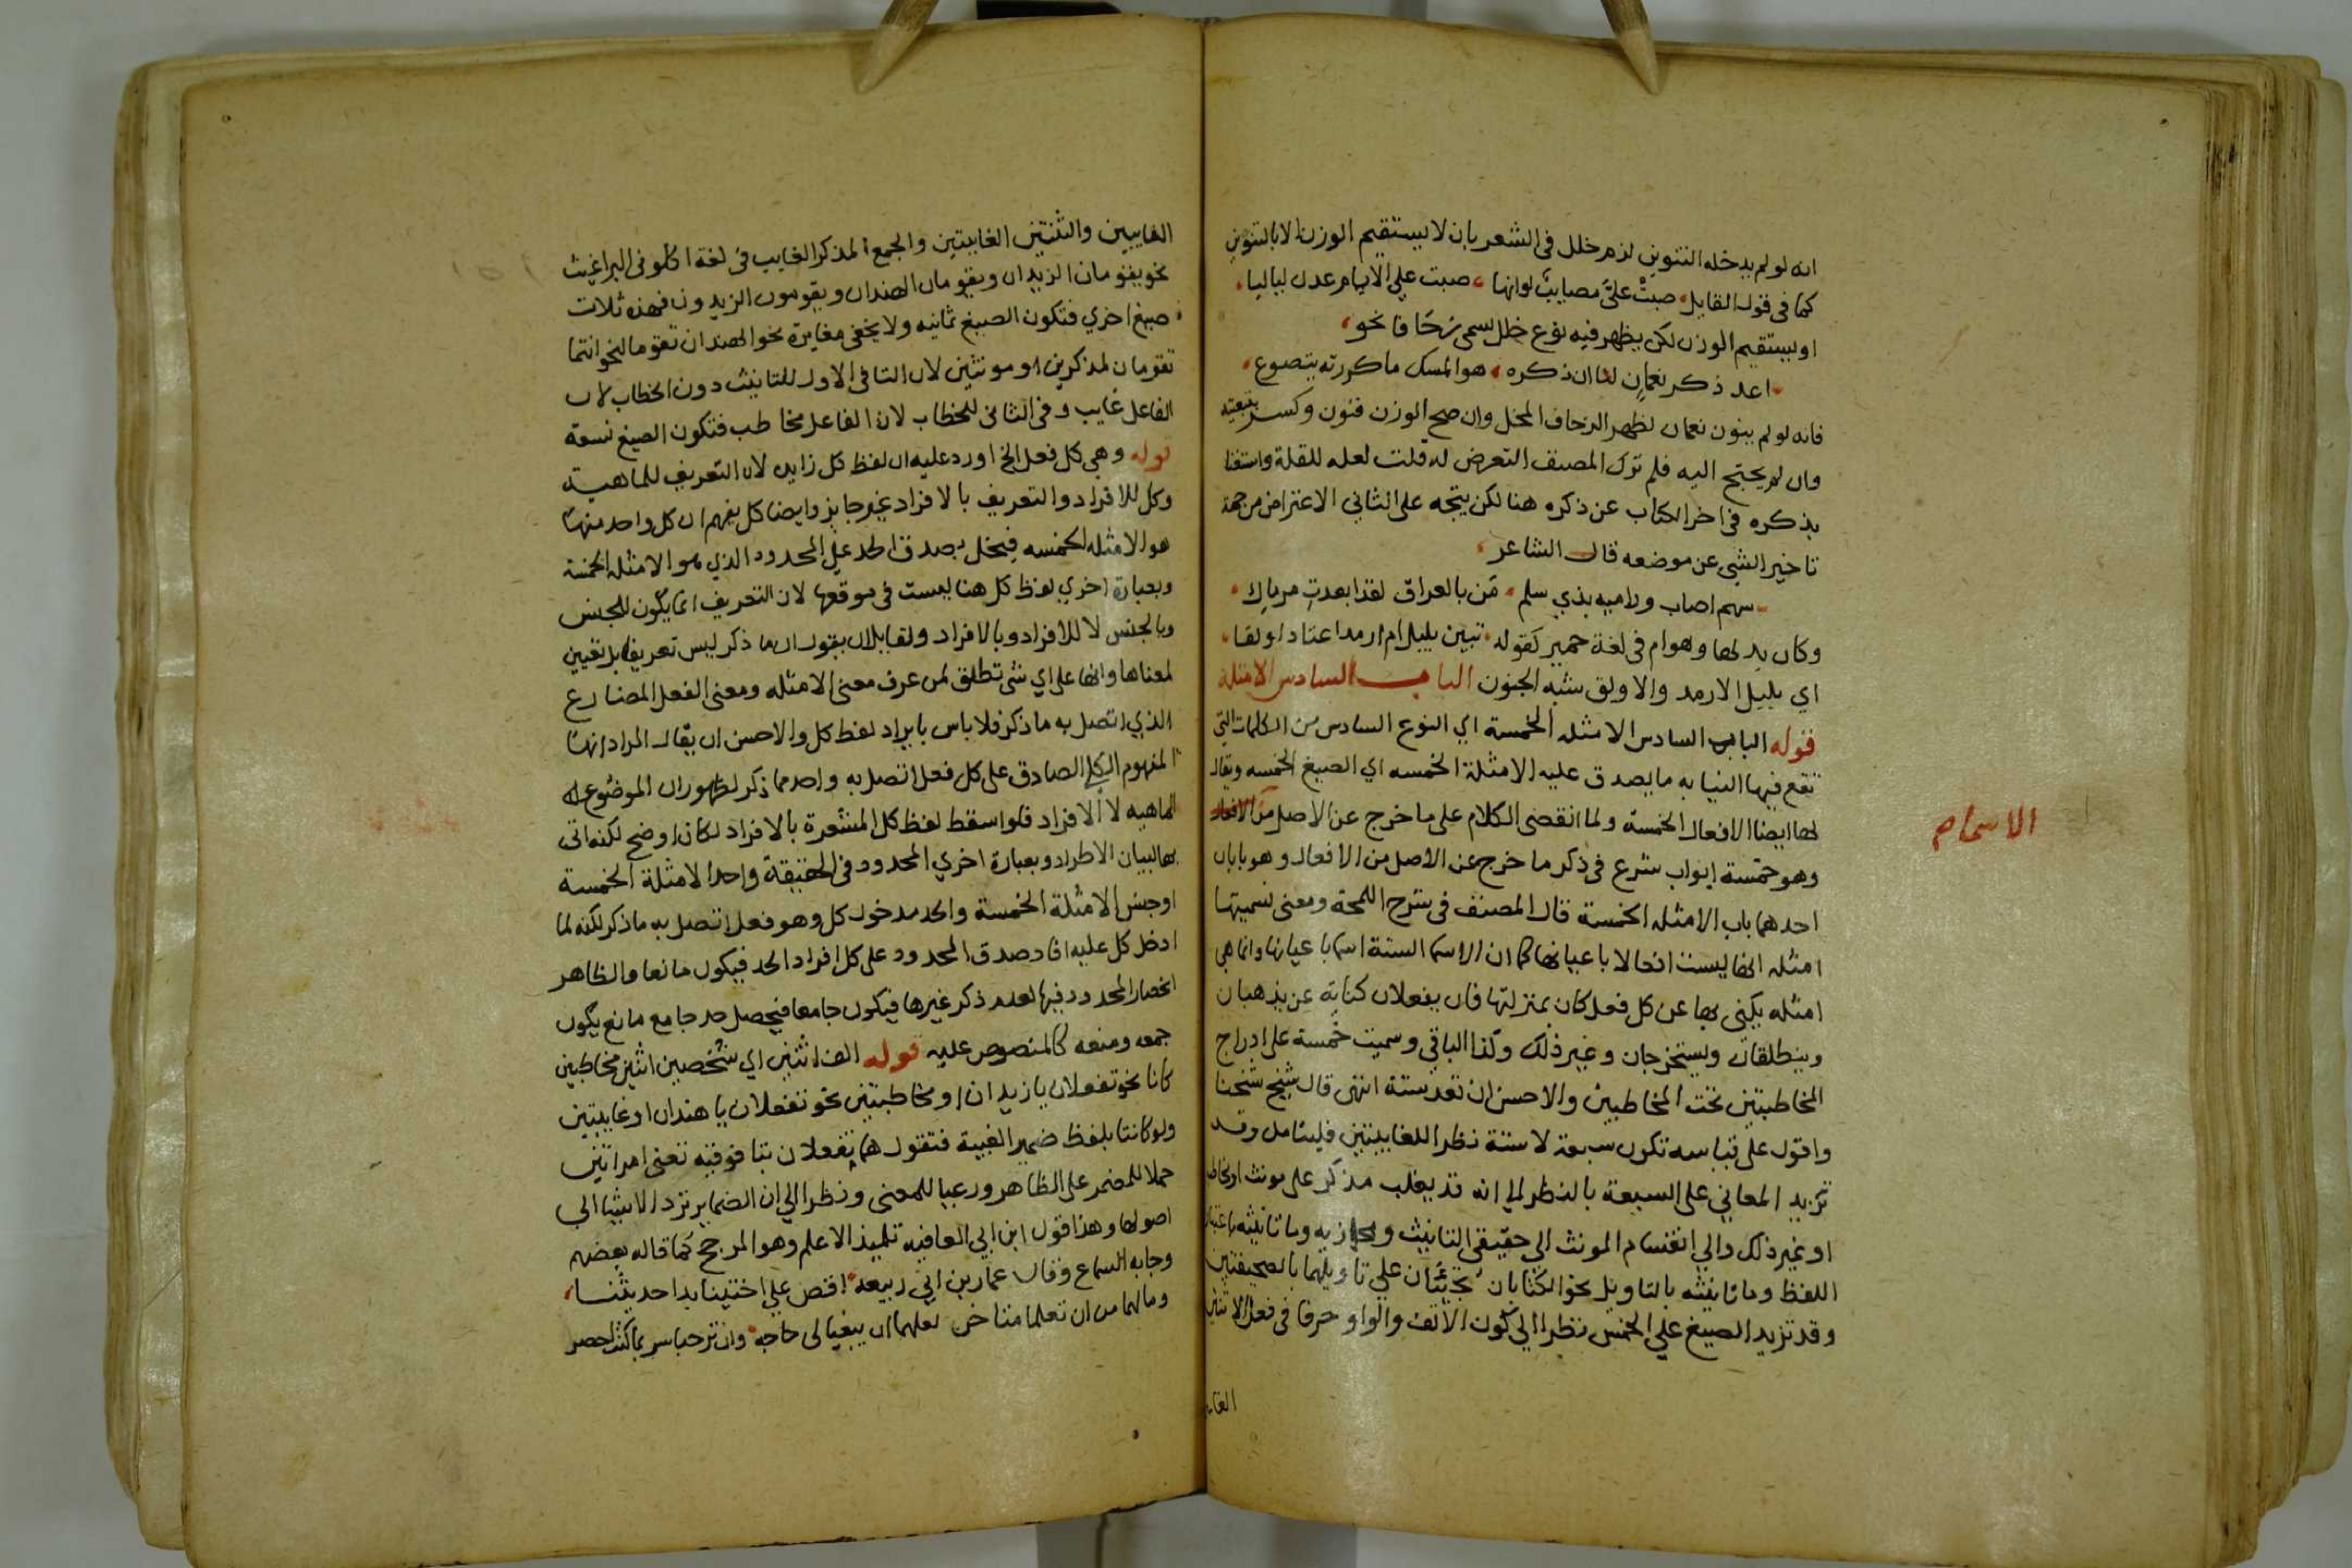 انه لو لم يدخله التنوين لزم خلل فى الشعر بان لا يستقيم الوزن الا بالتنوين
كما فى قول القايل صبتْ علىَّ مصايبٌ لو انها صبت على الايام عدن لياليا
او يستقيم الوزن لكن يظهر فيه نوع خلل يسمى زحافا نحو
اعد ذكر نعمانٍ لنا ان ذكره هو المسك ما كررته يتضوع
فانه لو لم ينون نعمان لظهر الزحاف المخل وان صح الوزن فنون وكسر بتبعيته
وان لم يحتج اليه فلم ترك المصنف التعرض له قلت لعله للقلة واستغنا
بذكره فى اخر الكتاب عن ذكره هنا لكن يتجه على الثاني الاعتراض من جهة
تاخير الشى عن موضعه قال الشاعر
سهم اصاب وراميه بذي سلم من بالعراق لقد ابعدت مرماك
وكان يدلها وهو ام فى لغة حمير كقوله تبيت بليل ام ارمد اعتاد اولقا
اي بليل الارمد والاولق شبه الجنون الباب السادس الامثلة
قوله الباب السادس الامثله الخمسة اي النوع السادس من الكلمات التي
تقع فيها النيابه ما يصدق عليه الامثلة الخمسه اي الصيغ الخمسه ويقال
لها ايضا الافعال الخمسة ولما انقضى الكلام على ما خرج عن الاصل من
الاسماء
وهو خمسة ابواب شرع فى ذكر ما خرج عن الاصل من الافعال وهو بابان
احدهما باب الامثله الخمسة قال المصنف فى شرح اللمحة ومعنى تسميتها
امثله انها ليست افعالا باعيانها كما ان الاسما الستة اسما باعيانها وانما هى
امثله يكنى بها عن كل فعل كان بمنزلتها فان يفعلان كناية عن يذهبان
وينطلقان ويستخرجان وغير ذلك وكذا الباقي وسميت خمسة على ادراج
المخاطبتين تحت المخاطبين والاحسن ان تعد ستة انتهى قال شيخ شيخنا
واقول على قياسه تكون سبعة لا ستة نظرا للغايبتين فليتامل وقد
تزيد المعاني على السبعة بالنظر الى انه قد يغلب مذكر على مونث او مخاطب
او غير ذلك والي انقسام المونث الي حقيقي التانيث ومجازيه وما تانيثه باعتبار
اللفظ وما تانيثه بالتاويل نحو الكتابان تجيئان علي تاويلهما بالصحيفتين
وقد تزيد الصيغ علي الخمس نظرا الي كون الالف والواو حرفا في فعل الاثنين
الغاي
الغايبين والثنتين الغايبتين والجمع المذكر الغايب فى لغة اكلونى البراغيث
نحو يقومان الزيدان ويقومان الهندان ويقومون الزيدون فهذه ثلاث
صيغ اخري فتكون الصيغ ثمانيه ولا يخفى مغايرة نحو الهندان تقومان لنحو انتما
تقومان لمذكرين او مونثين لان التا فى الاول للتانيث دون الخطاب لان
الفاعل غايب وفى الثانى للخطاب لان الفاعل مخاطب فتكون الصيغ تسعة
قوله وهي كل فعل الخ اورد عليه ان لفظ كل زايد لان التعريف للماهية
وكل للافراد والتعريف بالافراد غير جايز وايضا كل يفهم ان كل واحد منها
هو الامثله الخمسه فيخل بصدق الحد على المحدود الذي هو الامثله الخمسة
وبعبارة اخري لفظ كل هنا ليست فى موقعها لان التعريف انما يكون للجنس
وبالجنس لا للافراد وبالافراد ولقايل ان يقول ان ما ذكر ليس تعريفا بل تعيين
لمعناها وانها على اي شى تطلق لمن عرف معنى الامثله ومعنى الفعل المضارع
الذي اتصل به ما ذكر فلا باس بايراد لفظ كل والاحسن ان يقال المراد انها
المفهوم الكلي الصادق على كل فعل اتصل به واحد مما ذكر لظهور ان الموضوع له
الماهيه لا الافراد فلو اسقط لفظ كل المشعرة بالافراد لكان اوضح لكنه اتى
بها لبيان الاطراد وبعبارة اخري المحدود فى الحقيقة واحد الامثلة الخمسة
او جنس الامثلة الخمسة والحد مدخول كل وهو فعل اتصل به ما ذكر لكنه لما
ادخل كل عليه افاد صدق المحدود على كل افراد الحد فيكون مانعا والظاهر
انحصار المحدود فيها لعدم ذكر غيرها فيكون جامعا فيحصل حد جامع مانع يكون
جمعه ومنعه كالمنصوص عليه قوله الف اثنين اي شخصين اثنين مخاطبين
كانا نحو تفعلان يا زيدان او مخاطبتين نحو تفعلان يا هندان او غايبتين
ولو كانتا بلفظ ضمير الغيبة فتقول هما تفعلان بتا فوقيه تعنى امراتين
حملا للمضمر على الظاهر ورعيا للمعنى ونظرا الي ان الضماير ترد الاشيا الي
اصولها وهذا قول ابن ابي العافيه تلميذ الاعلم وهو المرجح كما قاله بعضهم
وجا به السماع وقال عمار بن ابي ربيعه اقص على اختينا بدا حديثنا
وما لهما من ان تعلما متاخر لعلهما ان يبغيا لى حاجه وان ترحبا سر بما كنت احصر